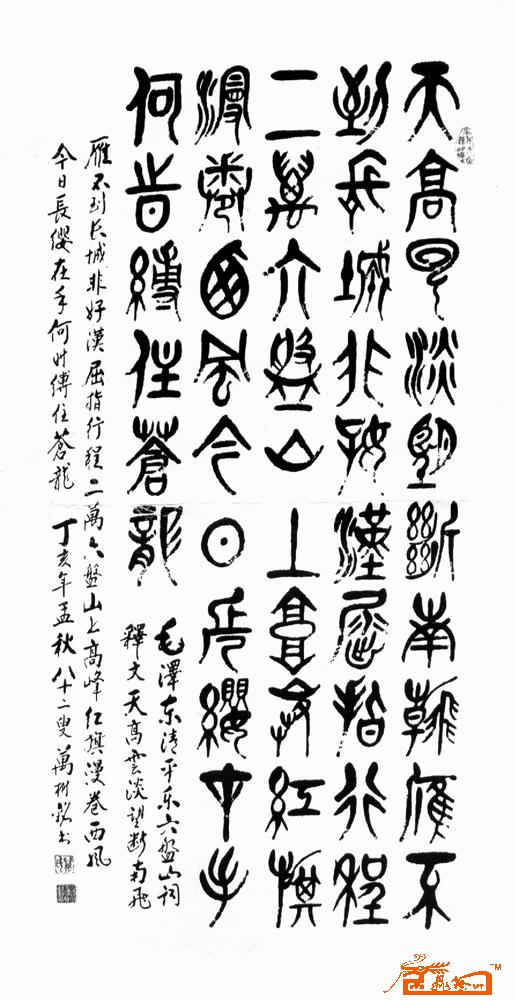 天高云淡望斷南飛雁不
到長城非好漢屈指行程
二萬六盤山上高峰紅旗
漫卷西風今日長纓在手
何時縛住蒼龍
毛澤东清平乐六盤山词
釋文天高雲淡望断南飛
雁不到长城非好漢屈指行程二萬六盤山上高峰红旗漫卷西風
今日長缨在手何时缚住蒼龍 丁亥年孟秋八十二叟萬树铭书